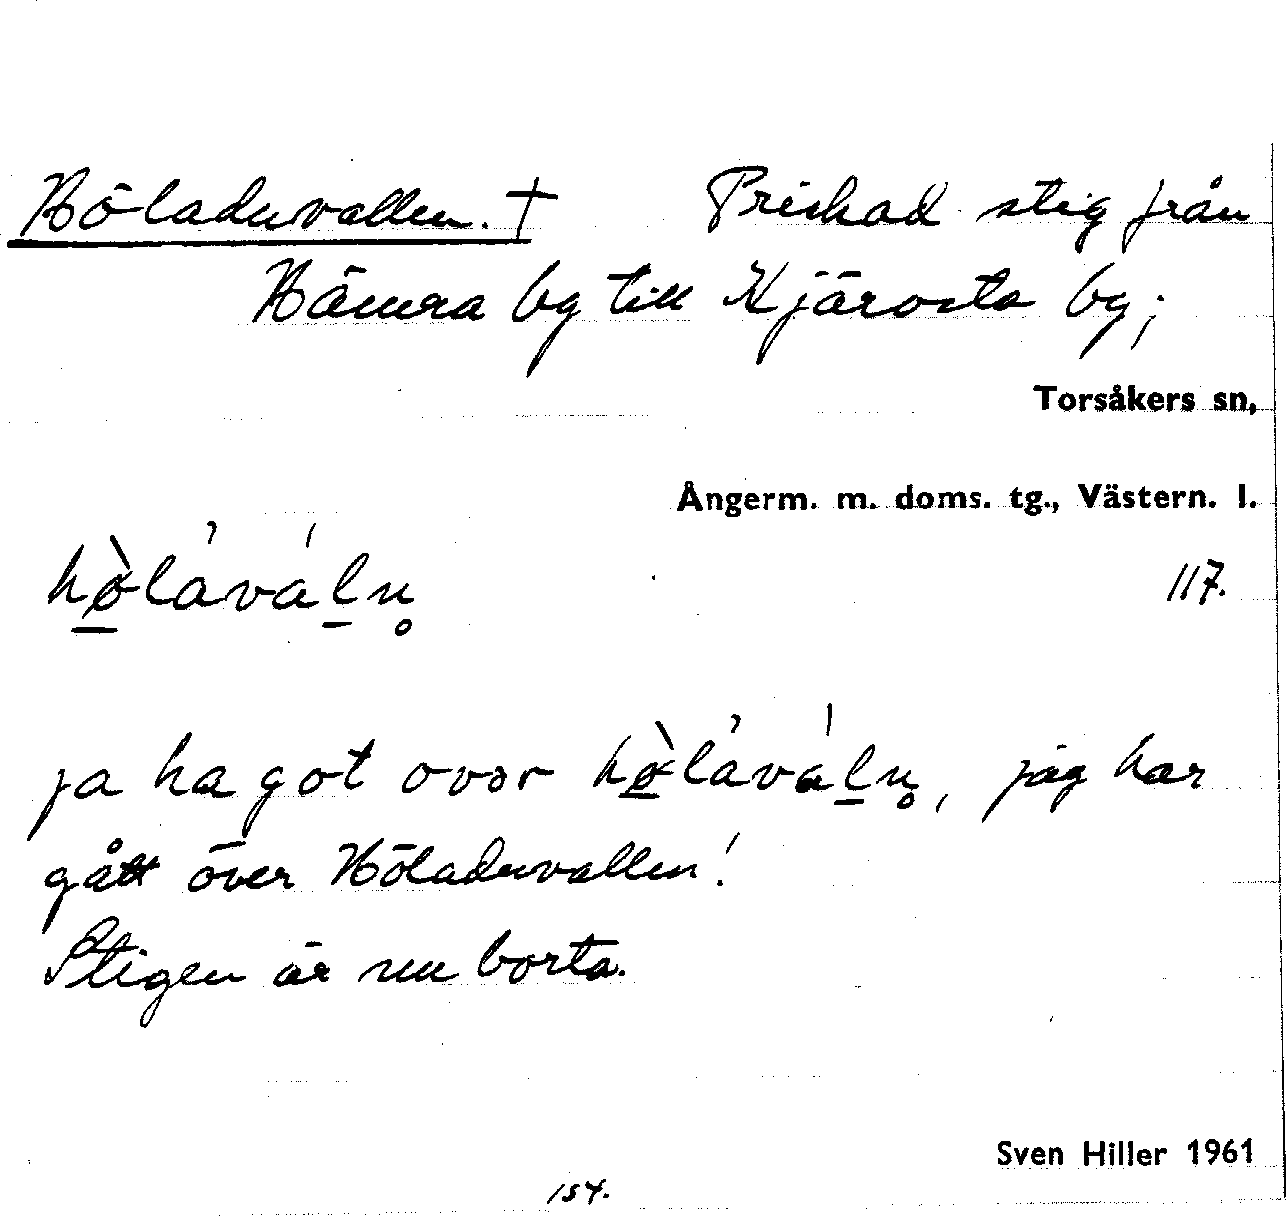 Höladuvallen. † Priskad stig från
Hämra by till Kjärosta by;
Torsåkers sn,
Ångerm. m. doms. tg., Västern. l.
117.
ja ha got ovər, jag har
gått över Höladuvallen!
Stigen är nu borta.
Sven Hiller 1961
154.